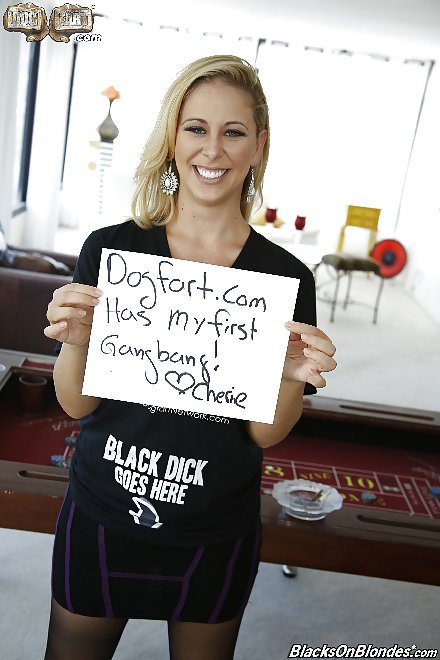 .com
Dogfart.com
Has my first
Gangbang!
♡Cherie
gfartNetwork.com
BLACK DICK
GOES HERE
8 NINE 10
BlacksOnBlondes.com